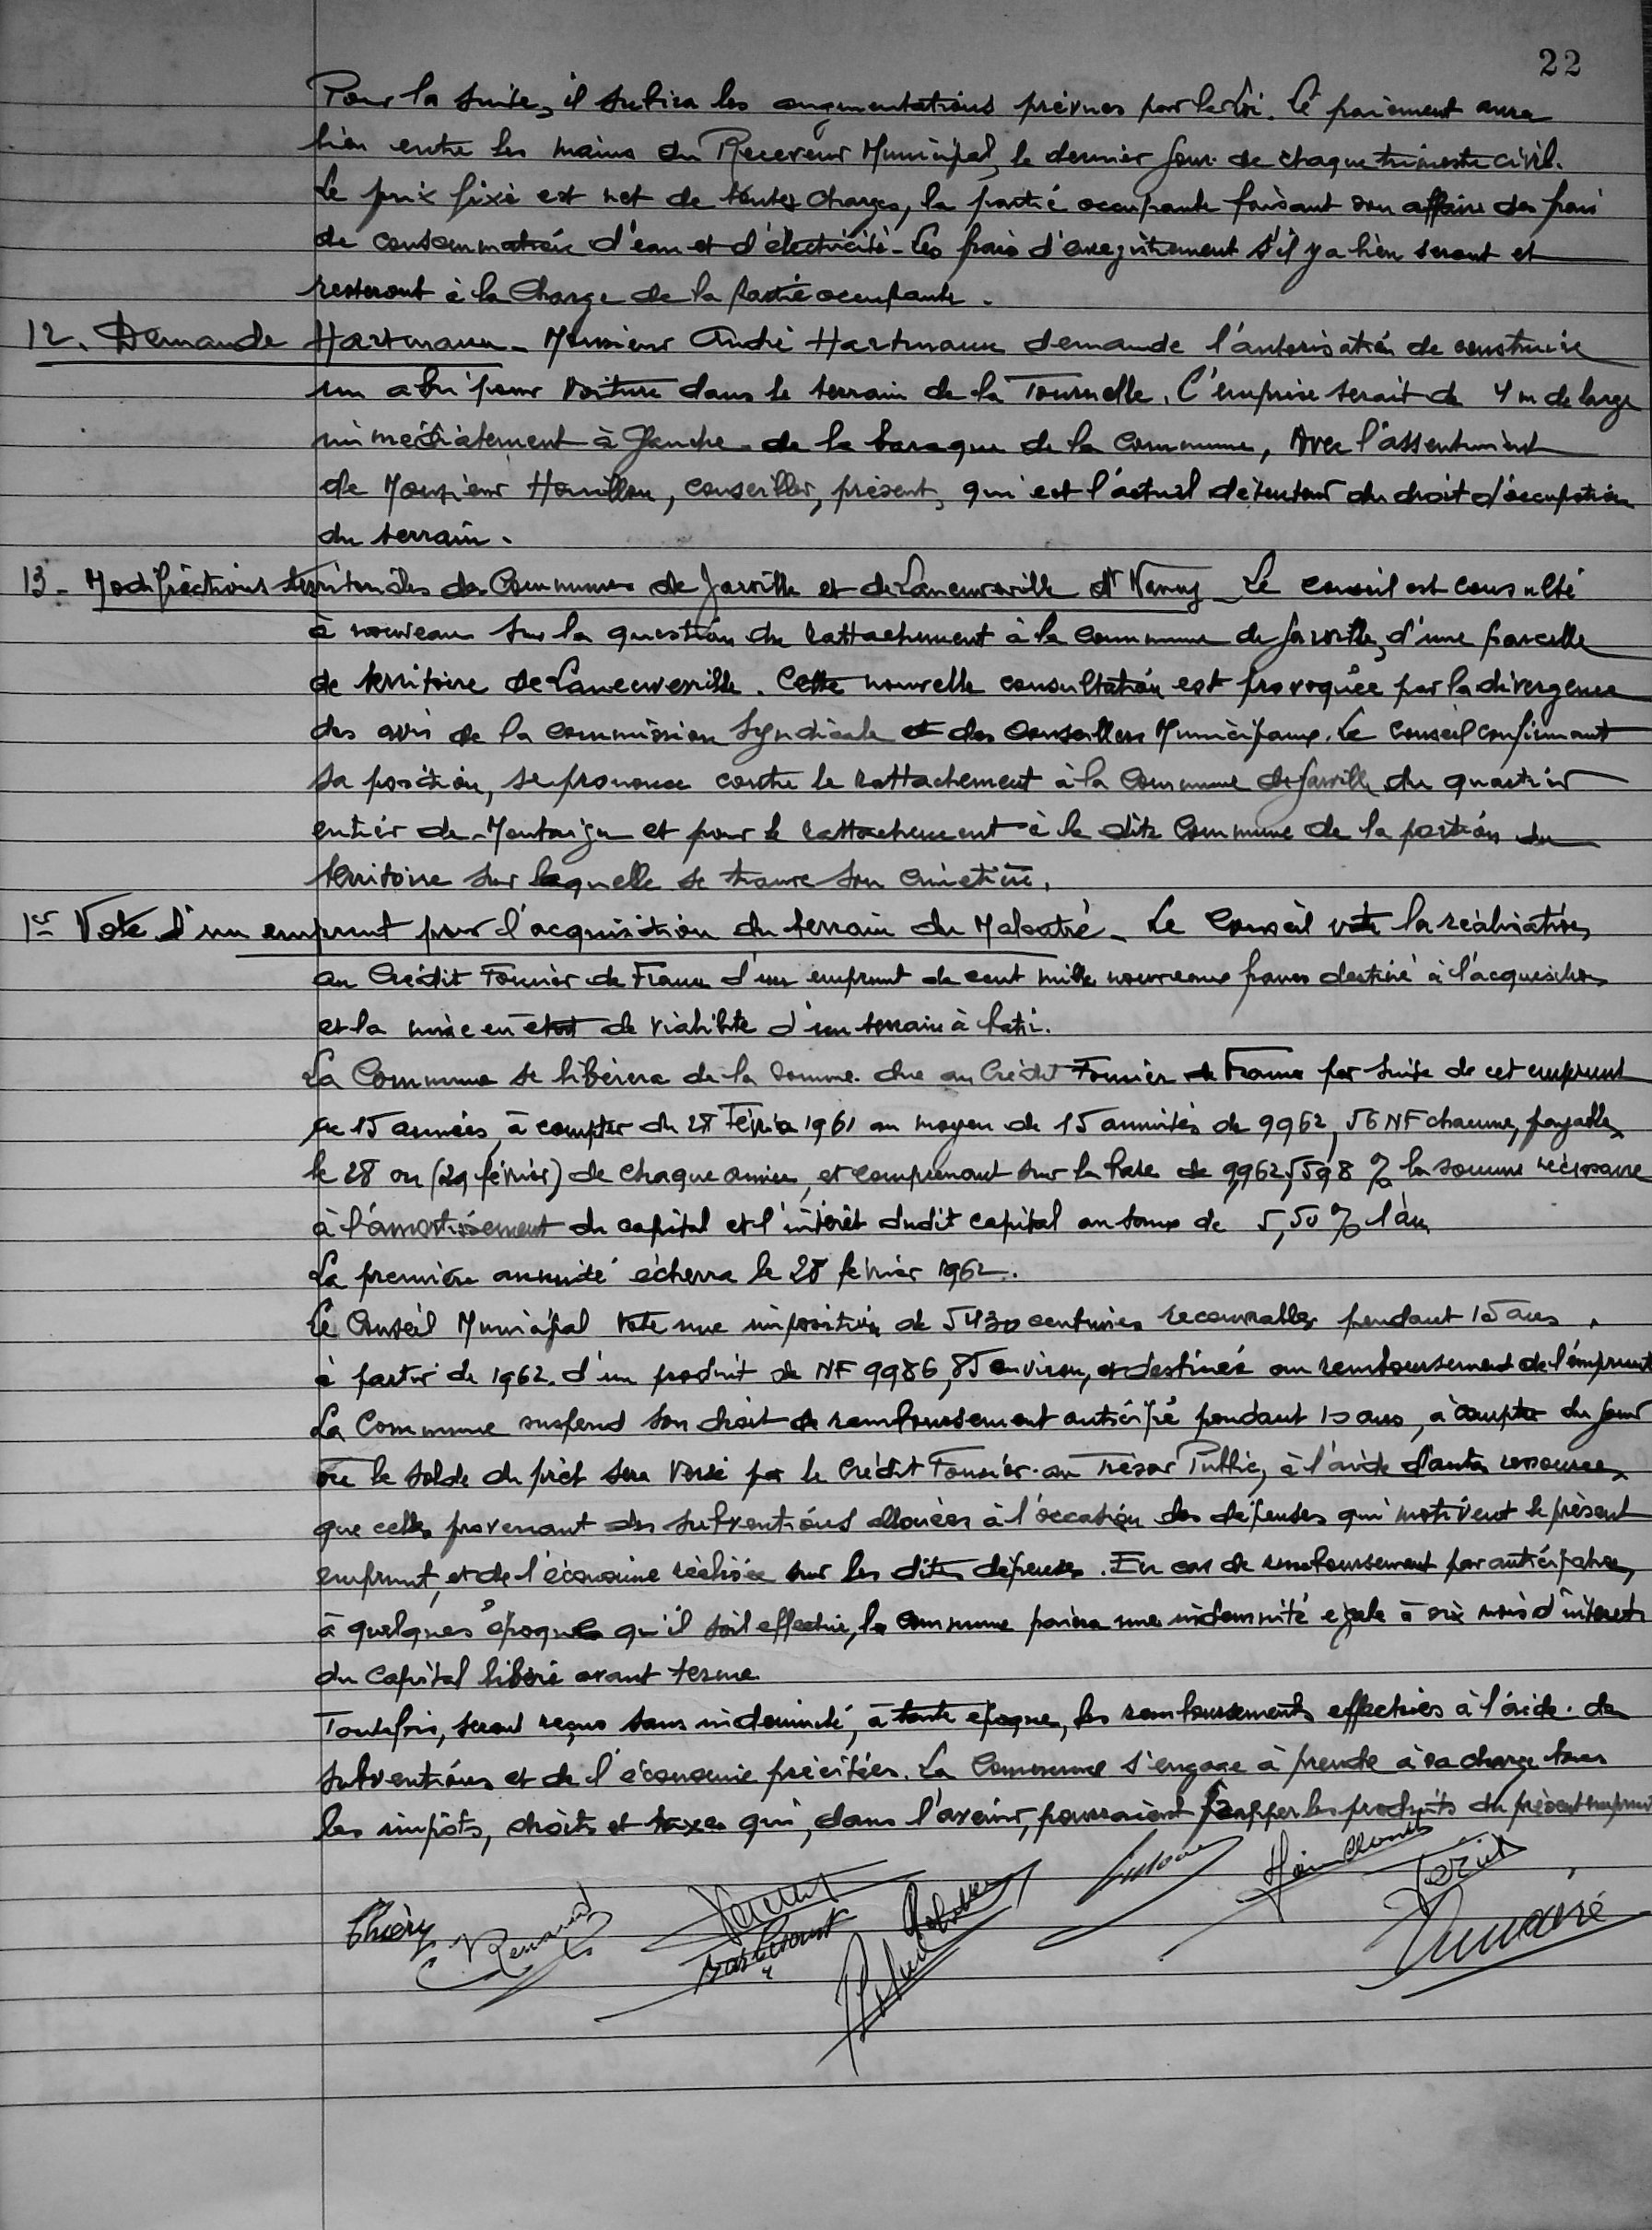 22
Pour la suite, il subira les augmentations prévues par la Loi. Le paiement aura
lieu entre les mains du Receveur Municipal, le dernier jour de chaque trimestre civil.
Le prix fixé est net de toutes charges, la partie occupante faisant son affaire des frais
de consommation d'eau et d'électricité - Les frais d'enregistrement s'il y a lieu seront et
resteront à la charge de la partie occupante.
12. Demande Hartmann - Monsieur André Hartmann demande l'autorisation de construire
un abri pour voiture dans le terrain de la Tournelle. L'emprise serait de 4 m de large
immédiatement à gauche de la baraque de la Commune, Avec l'assentiment
de Monsieur Houillon, conseiller, présent, qui est l'actuel détenteur du droit d'occupation
du terrain.
13 - Modifications territoriales des Communes de Jarville et de Laneuveville dt Nancy - Le conseil est consulté
à nouveau sur la question du rattachement à la commune de Jarville, d'une parcelle
de territoire de Laneuveville. Cette nouvelle consultation est provoquée par la divergence
des avis de la commission Syndicale et des Conseillers Municipaux. Le Conseil confirmant
sa position, se prononce contre le rattachement à la Commune de Jarville du quartier
entier de Montaigu et pour le rattachement à la dite Commune de la portion du
territoire sur laquelle se trouve son cimetière.
Vote d'un emprunt pour l'acquisition du terrain du - Le Conseil vote la réalisation,
au Crédit Foncier de France d'un emprunt de cent mille nouveaux francs destiné à l'acquisition
et la mise en état de viabilité d'un terrain à bâtir.
La Commune se libérera de la somme due au Crédit Foncier de France par suite de cet emprunt
en 15 années, à compter du 28 Février 1961 au moyen de 15 annuités de 9962,56 NF chacune, payables
le 28 ou (29 février) de chaque année, et comprenant sur la base de 9,962,598 % la somme nécessaire
à l'amortissement du capital et l'intérêt dudit capital au taux de 5,50 % l'an
La première annuité écherra le 28 février 1962.
Le Conseil Municipal vote une imposition de 5430 centimes recouvrables pendant 15 ans.
à partir de 1962. d'un produit de NF 9986,85 environ, et destinée au remboursement de l'emprunt
La Commune suspend son droit de remboursement anticipé pendant 10 ans, à compter du jour
où le solde du prêt sera versé par le Crédit Foncier au Trésor Public, à l'aide d'autres ressources
que celles provenant des subventions allouées à l'occasion des dépenses qui motivent le présent
emprunt, et de l'économie réalisée sur les dites dépenses. En cas de remboursement par anticipation,
à quelques époques qu'il soit effectué, la commune paiera une indemnité égale à six mois d'intérêts
du capital libéré avant terme
Toutefois, seront reçus sans indemnité, à toute époque, les remboursements effectués à l'aide de
subventions et de l'économie précitées. La Commune s'engage à prendre à sa charge tous
les impôts, droits et taxes qui, dans l'avenir, pourraient frapper les produits du présent emprunt
Thiéry
Renauld